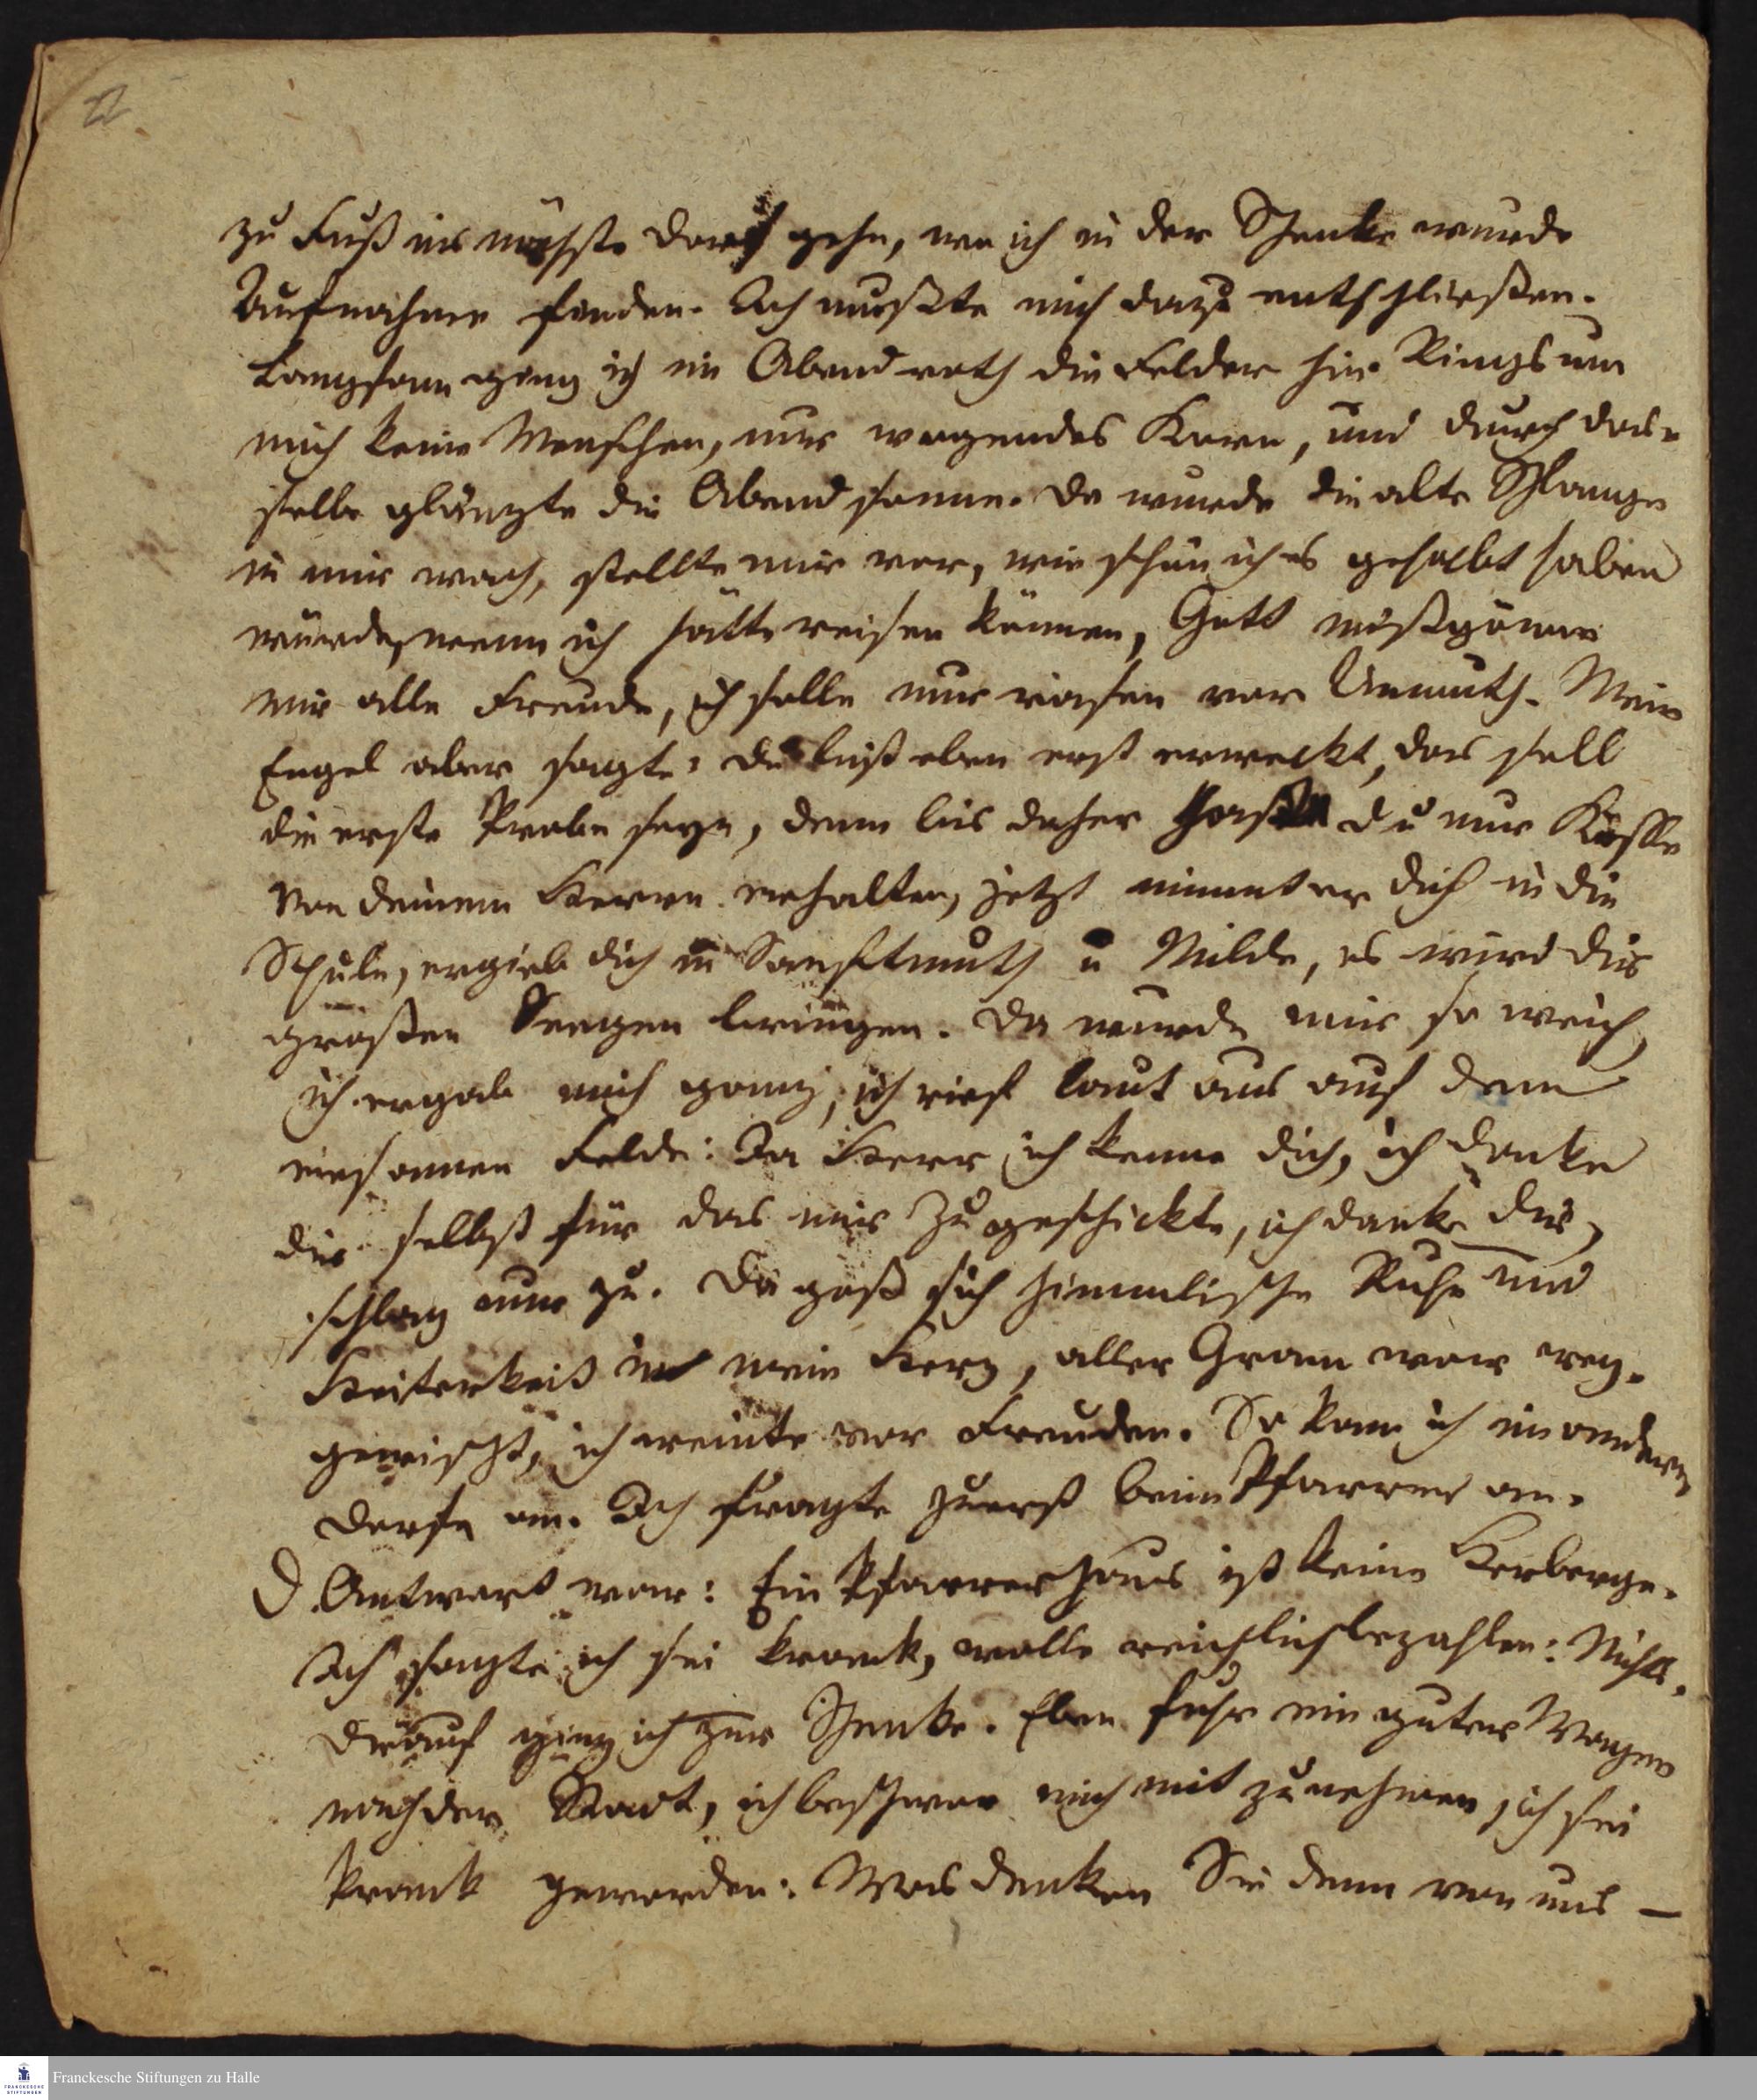 22
zu Fuß ins nächste Dorf gehn, wo ich in der Schenke würde
Aufnahme finden. Ich mußte mich dazu entschließen.
Langsam ging ich im Abendroth die Felder hin. Rings um
mich keine Menschen, nur wogendes Korn, und durch das-
selbe glänzte die Abendsonne. Da wurde die alte Schlange
in mir wach, stellte mir vor, wie schön ich es gehabt haben
würde, wenn ich hätte reisen können, Gott mißgönne
mir alle Freude, ich solle nur rasen vor Unmuth. Mein
Engel aber sagte: du bist eben erst erweckt, das soll
die erste Probe seyn, denn bis daher hast du nur Küsse
von deinem Herrn erhalten, jetzt nimmt er dich in die
Schule, ergieb dich in Sanftmuth u Milde, es wird dir
großen Seegen bringen. Da wurde mir so weich,
ich ergab mich ganz, ich rief laut aus auf dem
einsamen Felde: Ja Herr ich kenne dich, ich danke
dir selbst für das mir zugeschickte, ich danke dir,
schlag nur zu. Da goß sich himmlische Ruhe und
Heiterkeit in mein Herz, aller Gram war weg-
gewischt, ich weinte vor Freuden. So kam ich im andern
Dorfe an. Ich fragte zuerst beim Pfarrer an.
D. Antwort war: Ein Pfarrerhaus ist keine Herberge.
Ich sagte ich sei krank, wolle reichlich bezahlen: Nichts.
Drauf ging ich zur Schenke. Eben fuhr ein guter Wagen
nach der Stadt, ich beschwor mich mit zu nehmen, ich sei
krank geworden: Was denken Sie denn von uns —
Franckesche Stiftungen zu Halle